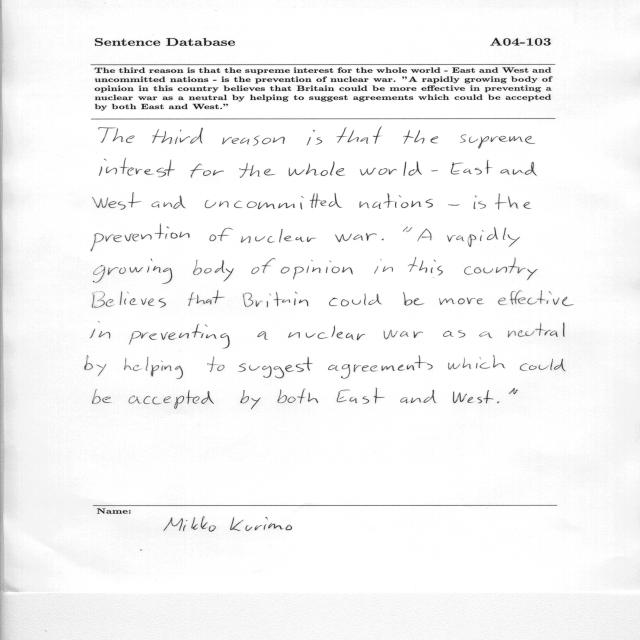 Sentence Database A04-103
The third reason is that the supreme interest for the whole world - East and West and
uncommitted nations - is the prevention of nuclear war. "A rapidly growing body of
opinion in this country believes that Britain could be more effective in preventing a
nuclear war as a neutral by helping to suggest agreements which could be accepted
by both East and West."
The third reason is that the supreme
interest for the whole world - East and
West and uncommitted nations - is the
prevention of nuclear war. "A rapidly
growing body of opinion in this country
Believes that Britain could be more effective
in preventing a nuclear war as a neutral
by helping to suggest agreements which could
be accepted by both East and West."
Name:
Mikko Kurimo